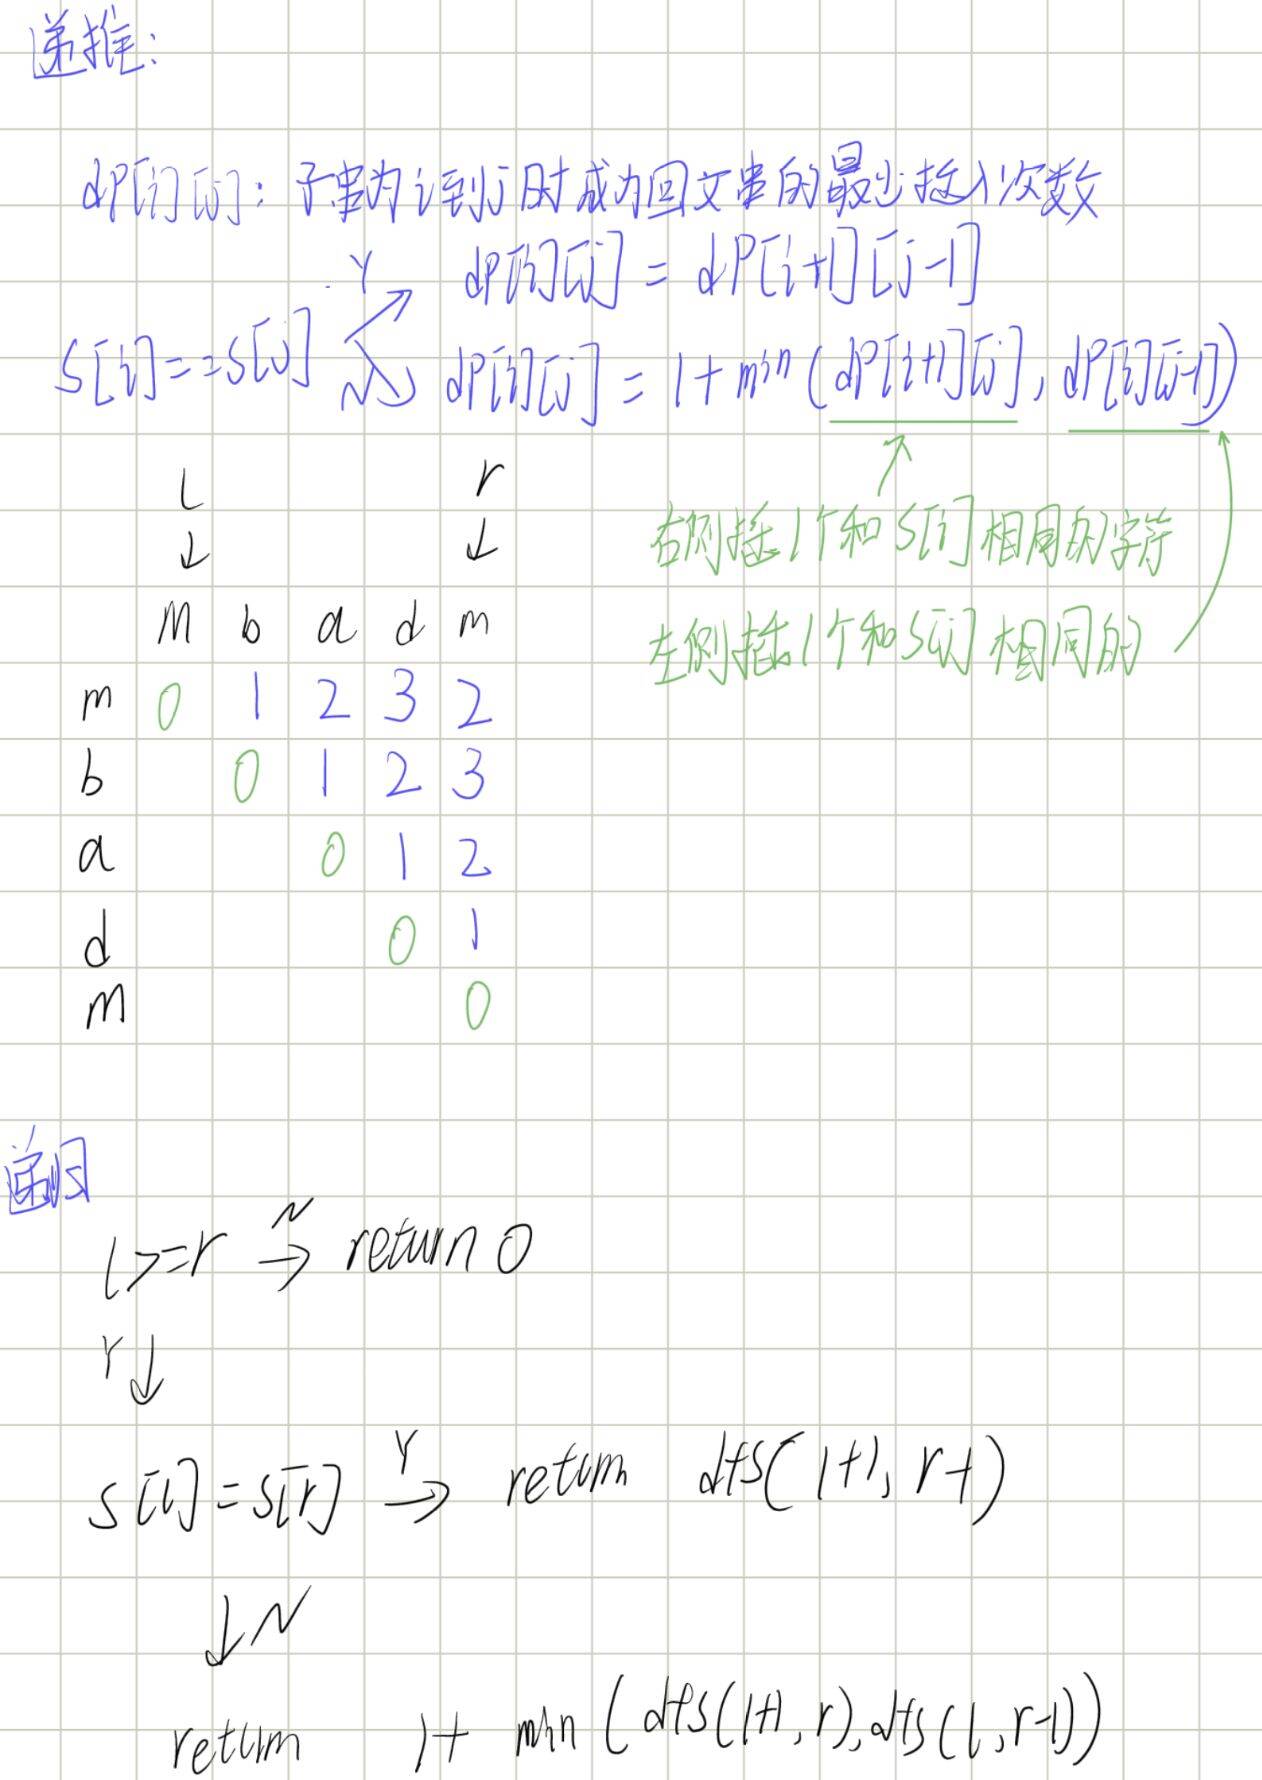 递推:
dp[i][j]: 子串为i到j时成为回文串的最少插入次数
Y dp[i][j] = dp[i+1][j-1]
S[i]==S[j]
N dp[i][j] = 1+min(dp[i+1][j], dp[i][j-1])
l r
↓ ↓
右侧插1个和S[i]相同的字符
m b a d m
左侧插1个和S[j]相同的
m 0 1 2 3 2
b 0 1 2 3
a 0 1 2
d 0 1
m 0
递归
l>=r N→ return 0
Y↓
s[l]=s[r] Y→ return dfs(l+1, r-1)
↓N
return 1+ min(dfs(l+1, r), dfs(l, r-1))